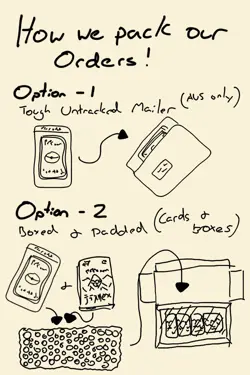 How we pack our
Orders!
Option - 1
Tough Untracked Mailer (AUS only)
Option - 2
Boxed & Padded (Cards & boxes)
&